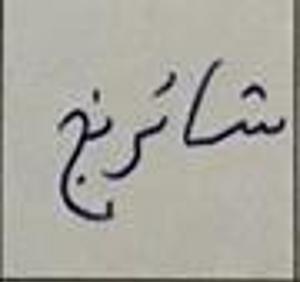 شائرنج